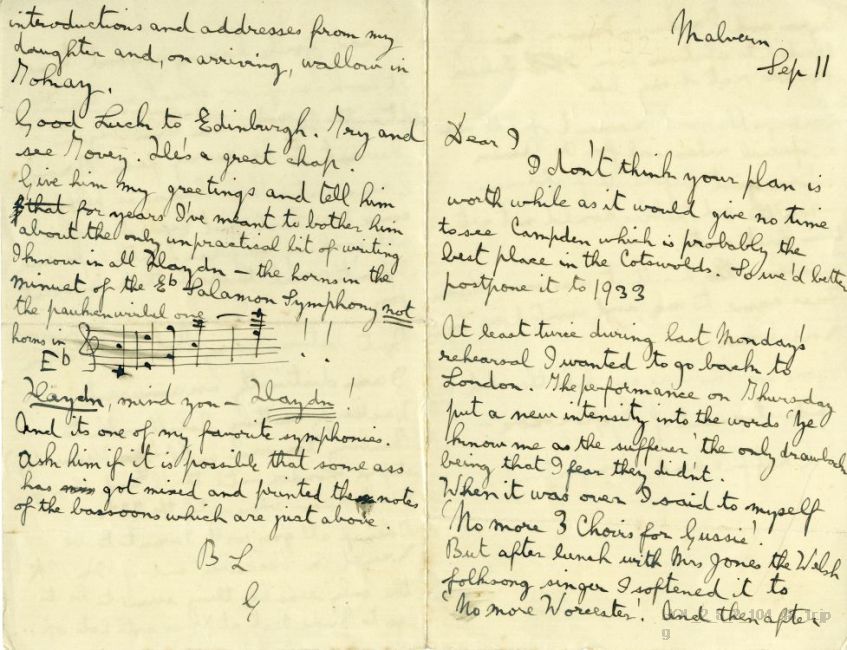 Malvern
Sep 11
Dear I
I don't think your plan is
worth while as it would give no time
to see Campden which is probably the
best place in the Cotswolds. So we'd better
postpone it to 1933
At least twice during last Monday's
rehearsal I wanted to go back to
London. The performance on Thursday
put a new intensity into the words 'Ye
know me as the sufferer' the only drawback
being that I fear they didn't.
When it was over I said to myself
'No more 3 Choirs for Gussie'.
But after lunch with Mrs Jones the Welsh
folksong singer I softened it to
'No more Worcester'. And then after
introductions and addresses from my
daughter and, on arriving, wallow in
Tokay.
Good Luck to Edinburgh. Try and
see Tovey. He's a great chap.
Give him my greetings and tell him
that for years I've meant to bother him
about the only unpractical bit of writing
I know in all Haydn – the horns in the
minuet of the Eb Salamon Symphony not
the paukenwirbel one –
horns in
Eb
!!
Haydn, mind you – Haydn!
And its one of my favorite symphonies.
Ask him if it is possible that some ass
has got mixed and printed the notes
of the bassoons which are just above.
B L
G